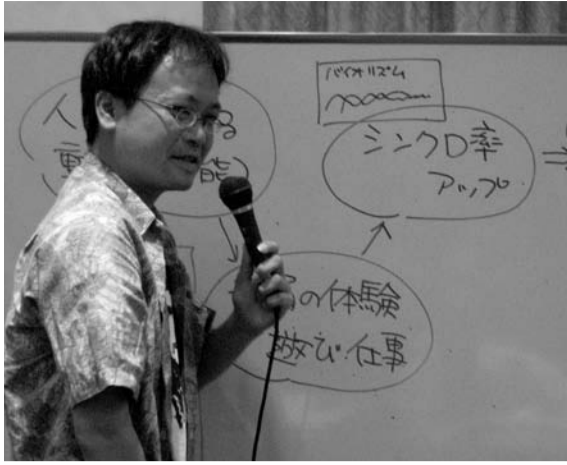 バイオリズム
シンクロ率
アップ
人
る
能)
の体験
遊び・仕事